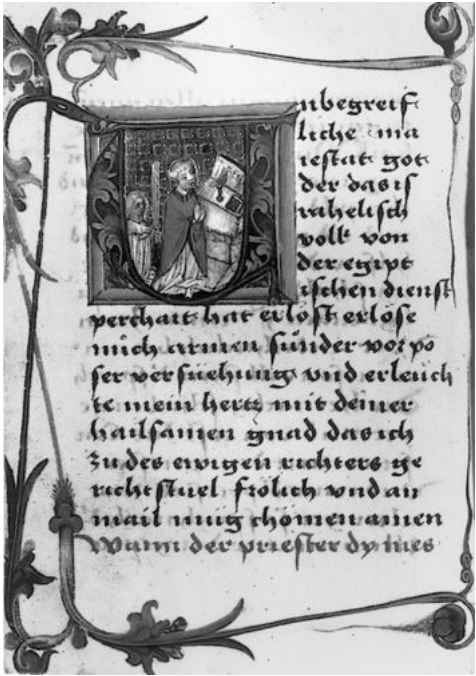 Unbegreif
liche ma
iestat got
der das is
rahelisch
volk von
der egipt
ischen dienst
perchait hat erlost erlose
mich armen sunder vor po
ser versuehung vnd erleuch
te mein hertz mit deiner
hailsamen gnad das ich
zu des ewigen richters ge
richtstuel frolich vnd an
mail mug chomen amen
Wann der priester dy mes